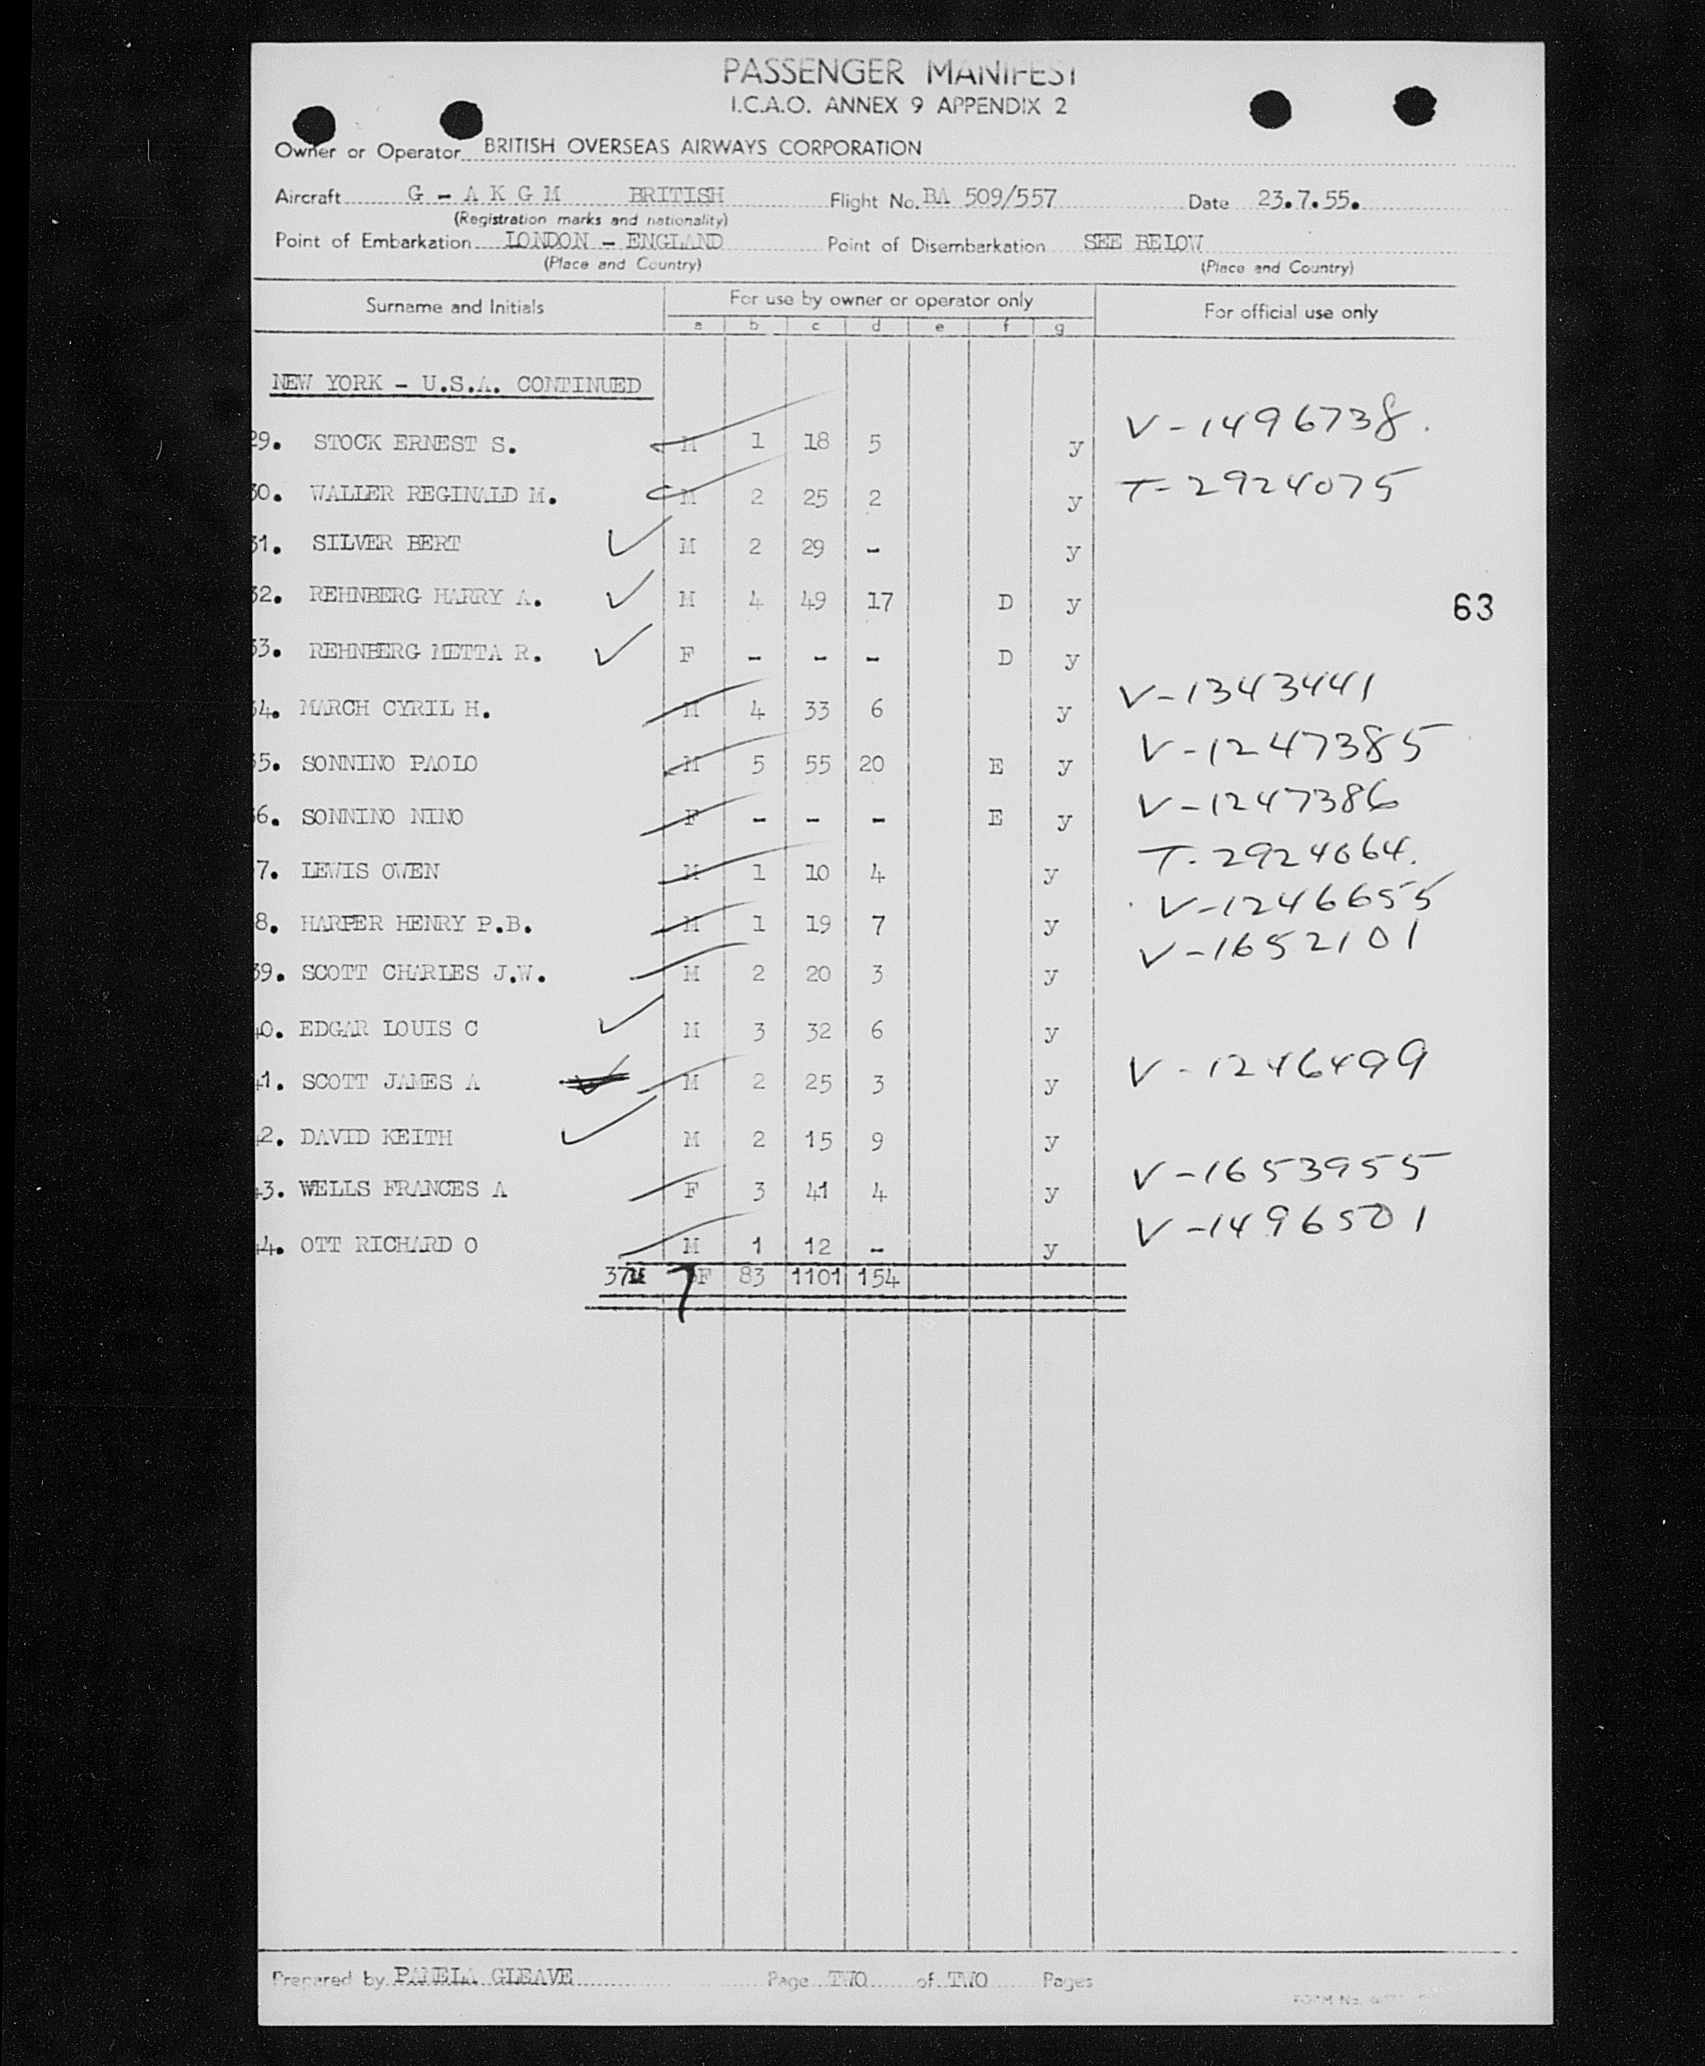 PASSENGER MANIFEST
I.C.A.O. ANNEX 9 APPENDIX 2
Owner or Operator BRITISH OVERSEAS AIRWAYS CORPORATION
Aircraft G - A K G M BRITISH Flight No. BA 509/557 Date 23.7.55.
(Registration marks and nationality)
Point of Embarkation LONDON - ENGLAND Point of Disembarkation SEE BELOW
(Place and Country) (Place and Country)
Surname and Initials For use by owner or operator only For official use only
a b c d e f g
NEW YORK - U.S.A. CONTINUED
29. STOCK ERNEST S. M 1 18 5 y V-1496738.
30. WALLER REGINALD M. M 2 25 2 y T-2924075
31. SILVER BERT M 2 29 - y
32. REHNBERG HARRY A. M 4 49 17 D y 63
33. REHNBERG METTA R. F - - - D y
34. MARCH CYRIL H. M 4 33 6 y V-1343441
35. SONNINO PAOLO M 5 55 20 E y V-1247385
36. SONNINO NINO F - - - E y V-1247386
7. LEWIS OWEN M 1 10 4 y T-2924064.
8. HARPER HENRY P.B. M 1 19 7 y V-1246655
39. SCOTT CHARLES J.W. M 2 20 3 y V-1652101
40. EDGAR LOUIS C M 3 32 6 y
41. SCOTT JAMES A M 2 25 3 y V-1246499
42. DAVID KEITH M 2 15 9 y
43. WELLS FRANCES A F 3 41 4 y V-1653955
44. OTT RICHARD O M 1 12 - y V-1496501
37 7 F 83 1101 154
Prepared by PAMELA GLEAVE Page TWO of TWO Pages
FORM No.